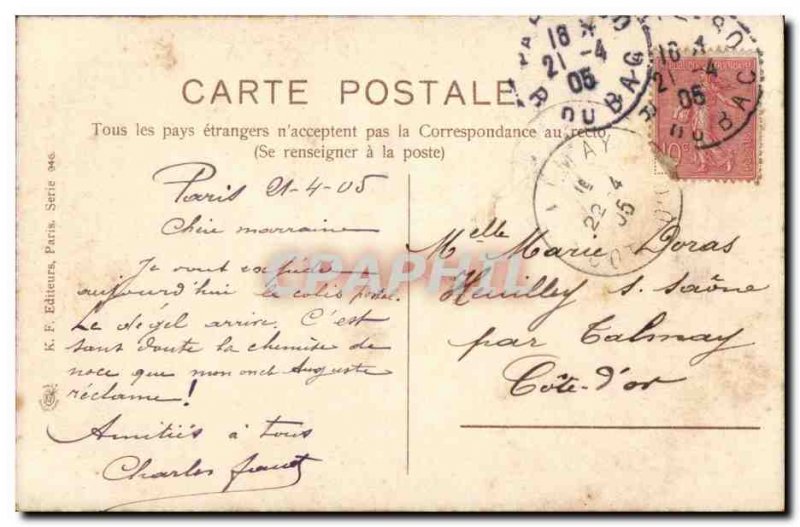 CARTE POSTALE
Tous les pays étrangers n'acceptent pas la Correspondance au recto
(Se renseigner à la poste)
K. F. Editeurs, Paris. Serie 946.
Paris 21-4-05
Chère marraine
Je vous
aujourd'hui le colis postal.
Le dégel arrive. C'est
sans doute la chemise de
noce que mon oncle Auguste
réclame!
Amitiés à tous
Charles
Melle Marie Doras
Heuilley s. Saône
par Talmay
Côte-d'or
21 -4
05
R DU BAC
21 -4
05
R DU BAC
TALMAY
22 4
05
COTE D'OR
10c
CPAPHIL